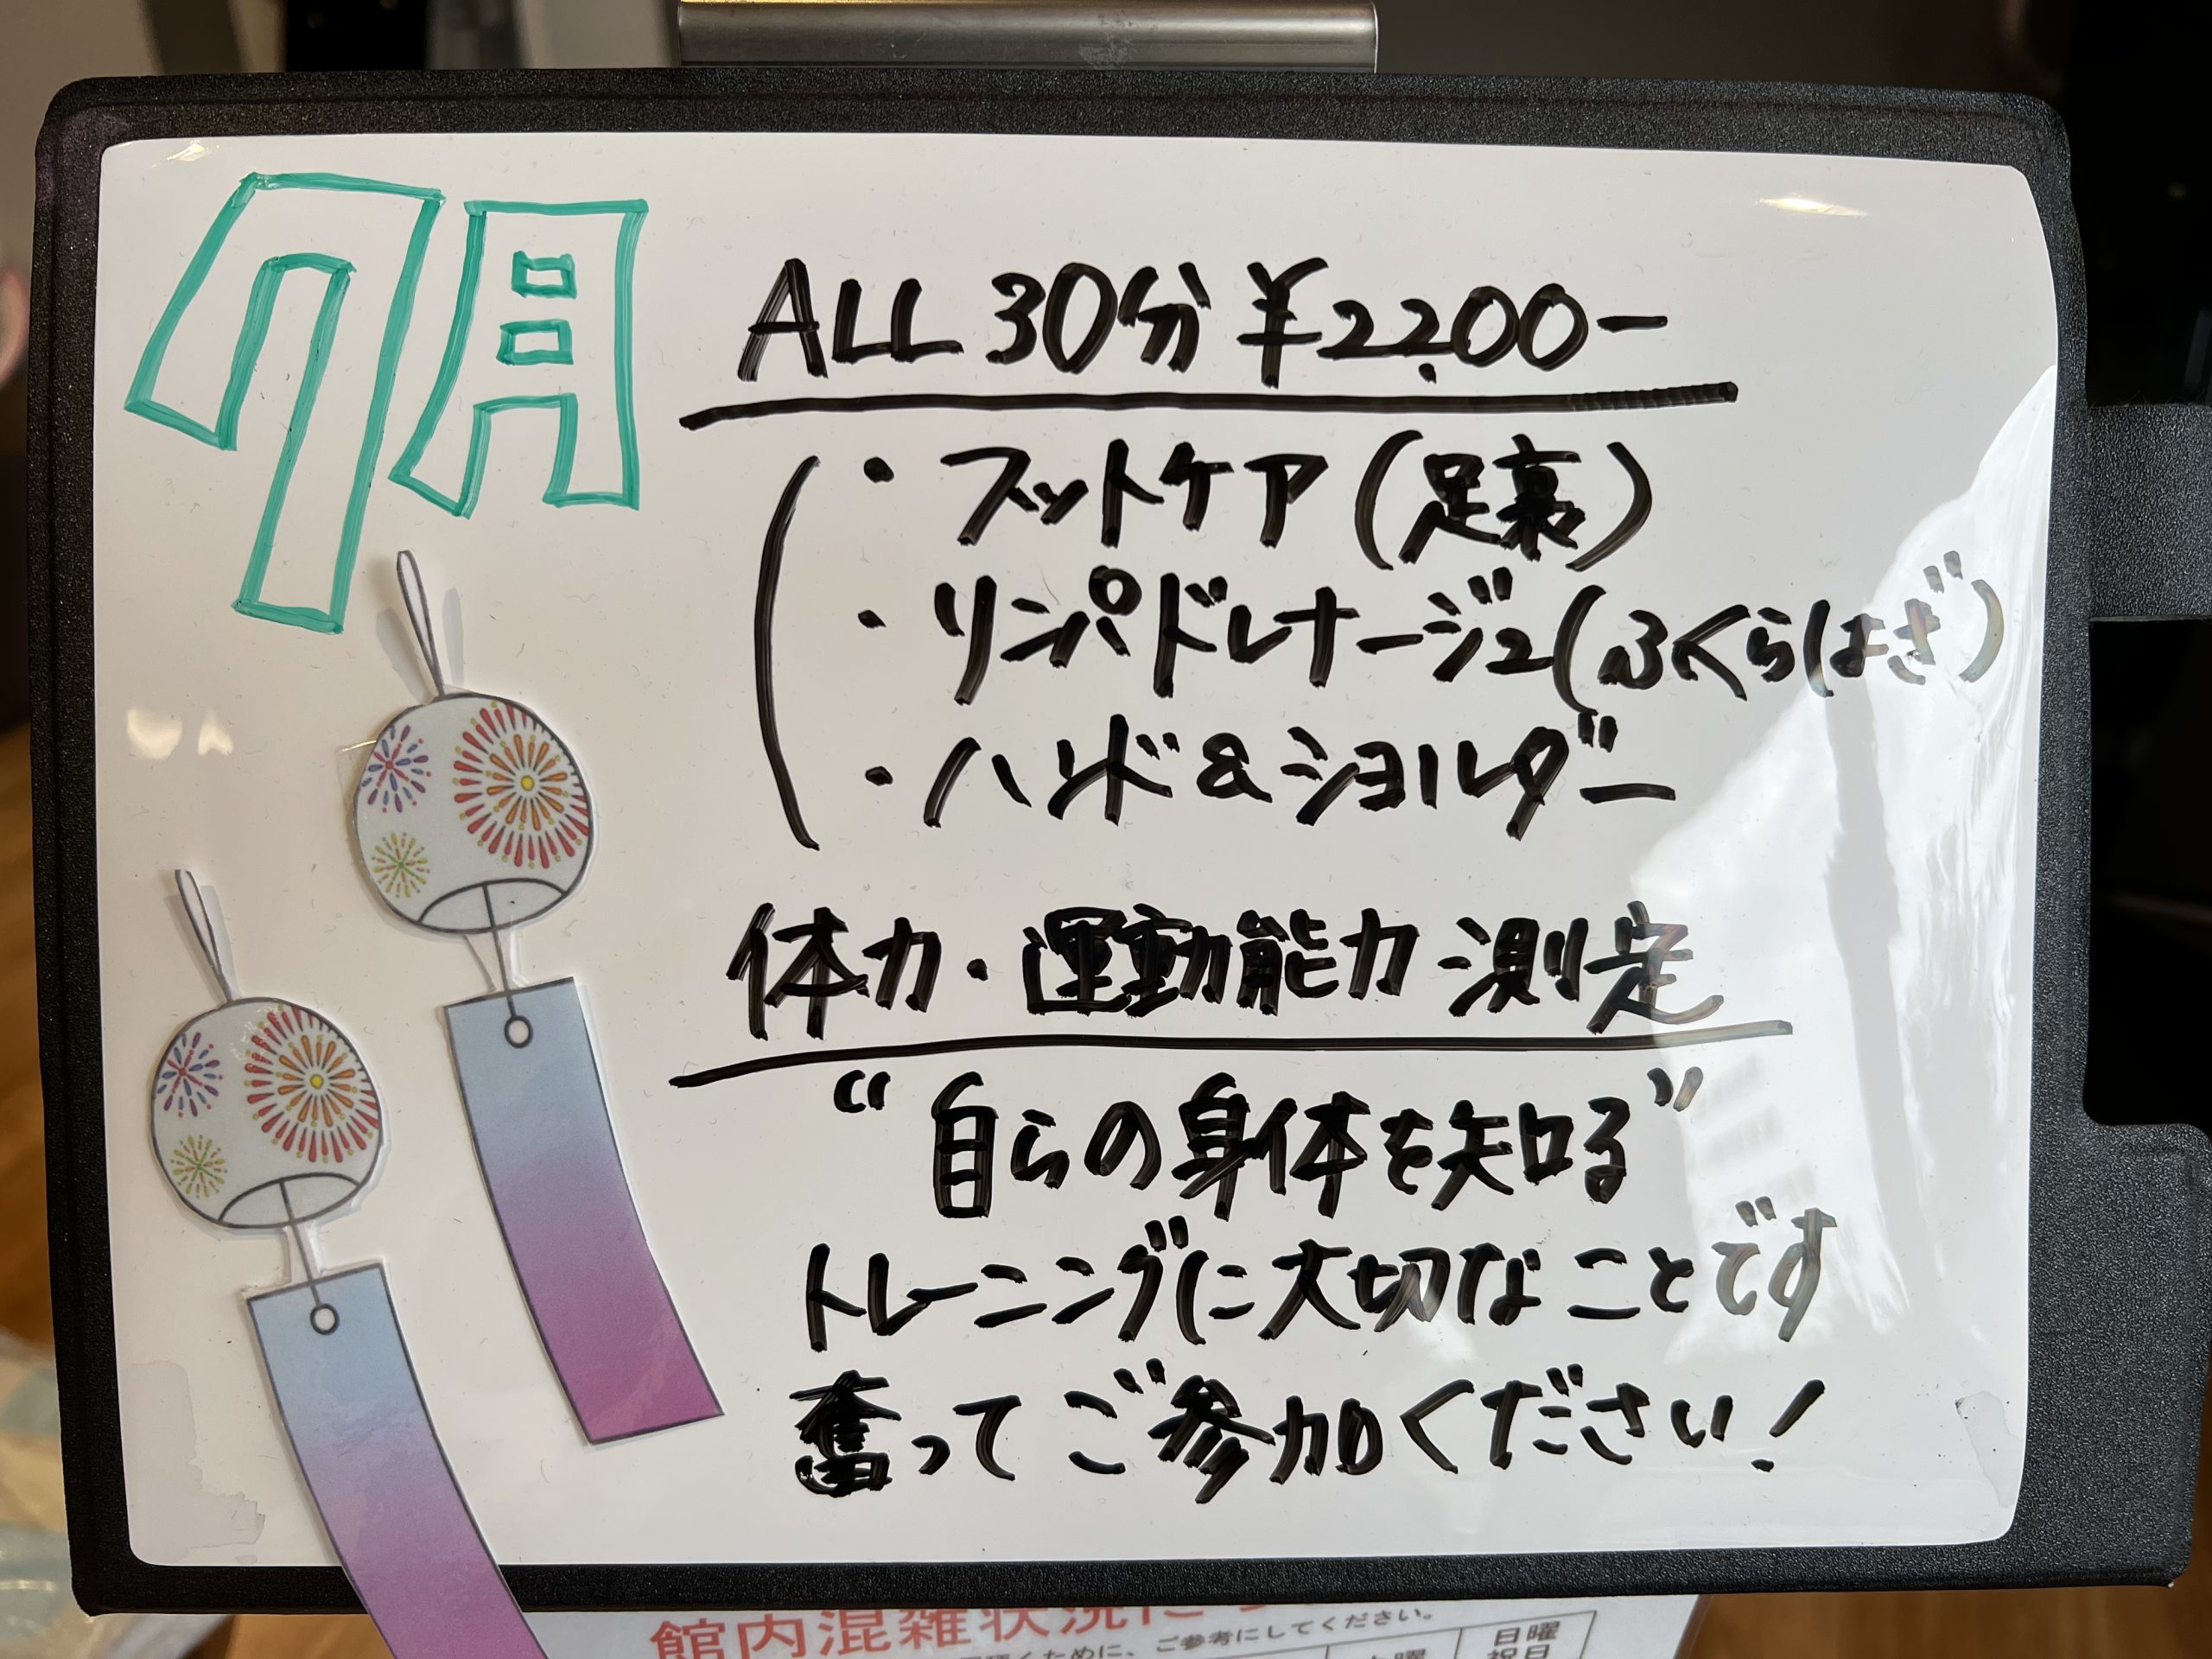 7月
ALL 30分 ¥2,200-
・フットケア(足裏)
・リンパドレナージュ(ふくらはぎ)
・ハンド&ショルダー
体力・運動能力測定
“自らの身体を知る”
トレーニングに大切なことです
奮ってご参加ください!
館内混雑状況に
くために、ご参考にしてください。
日曜
祝日